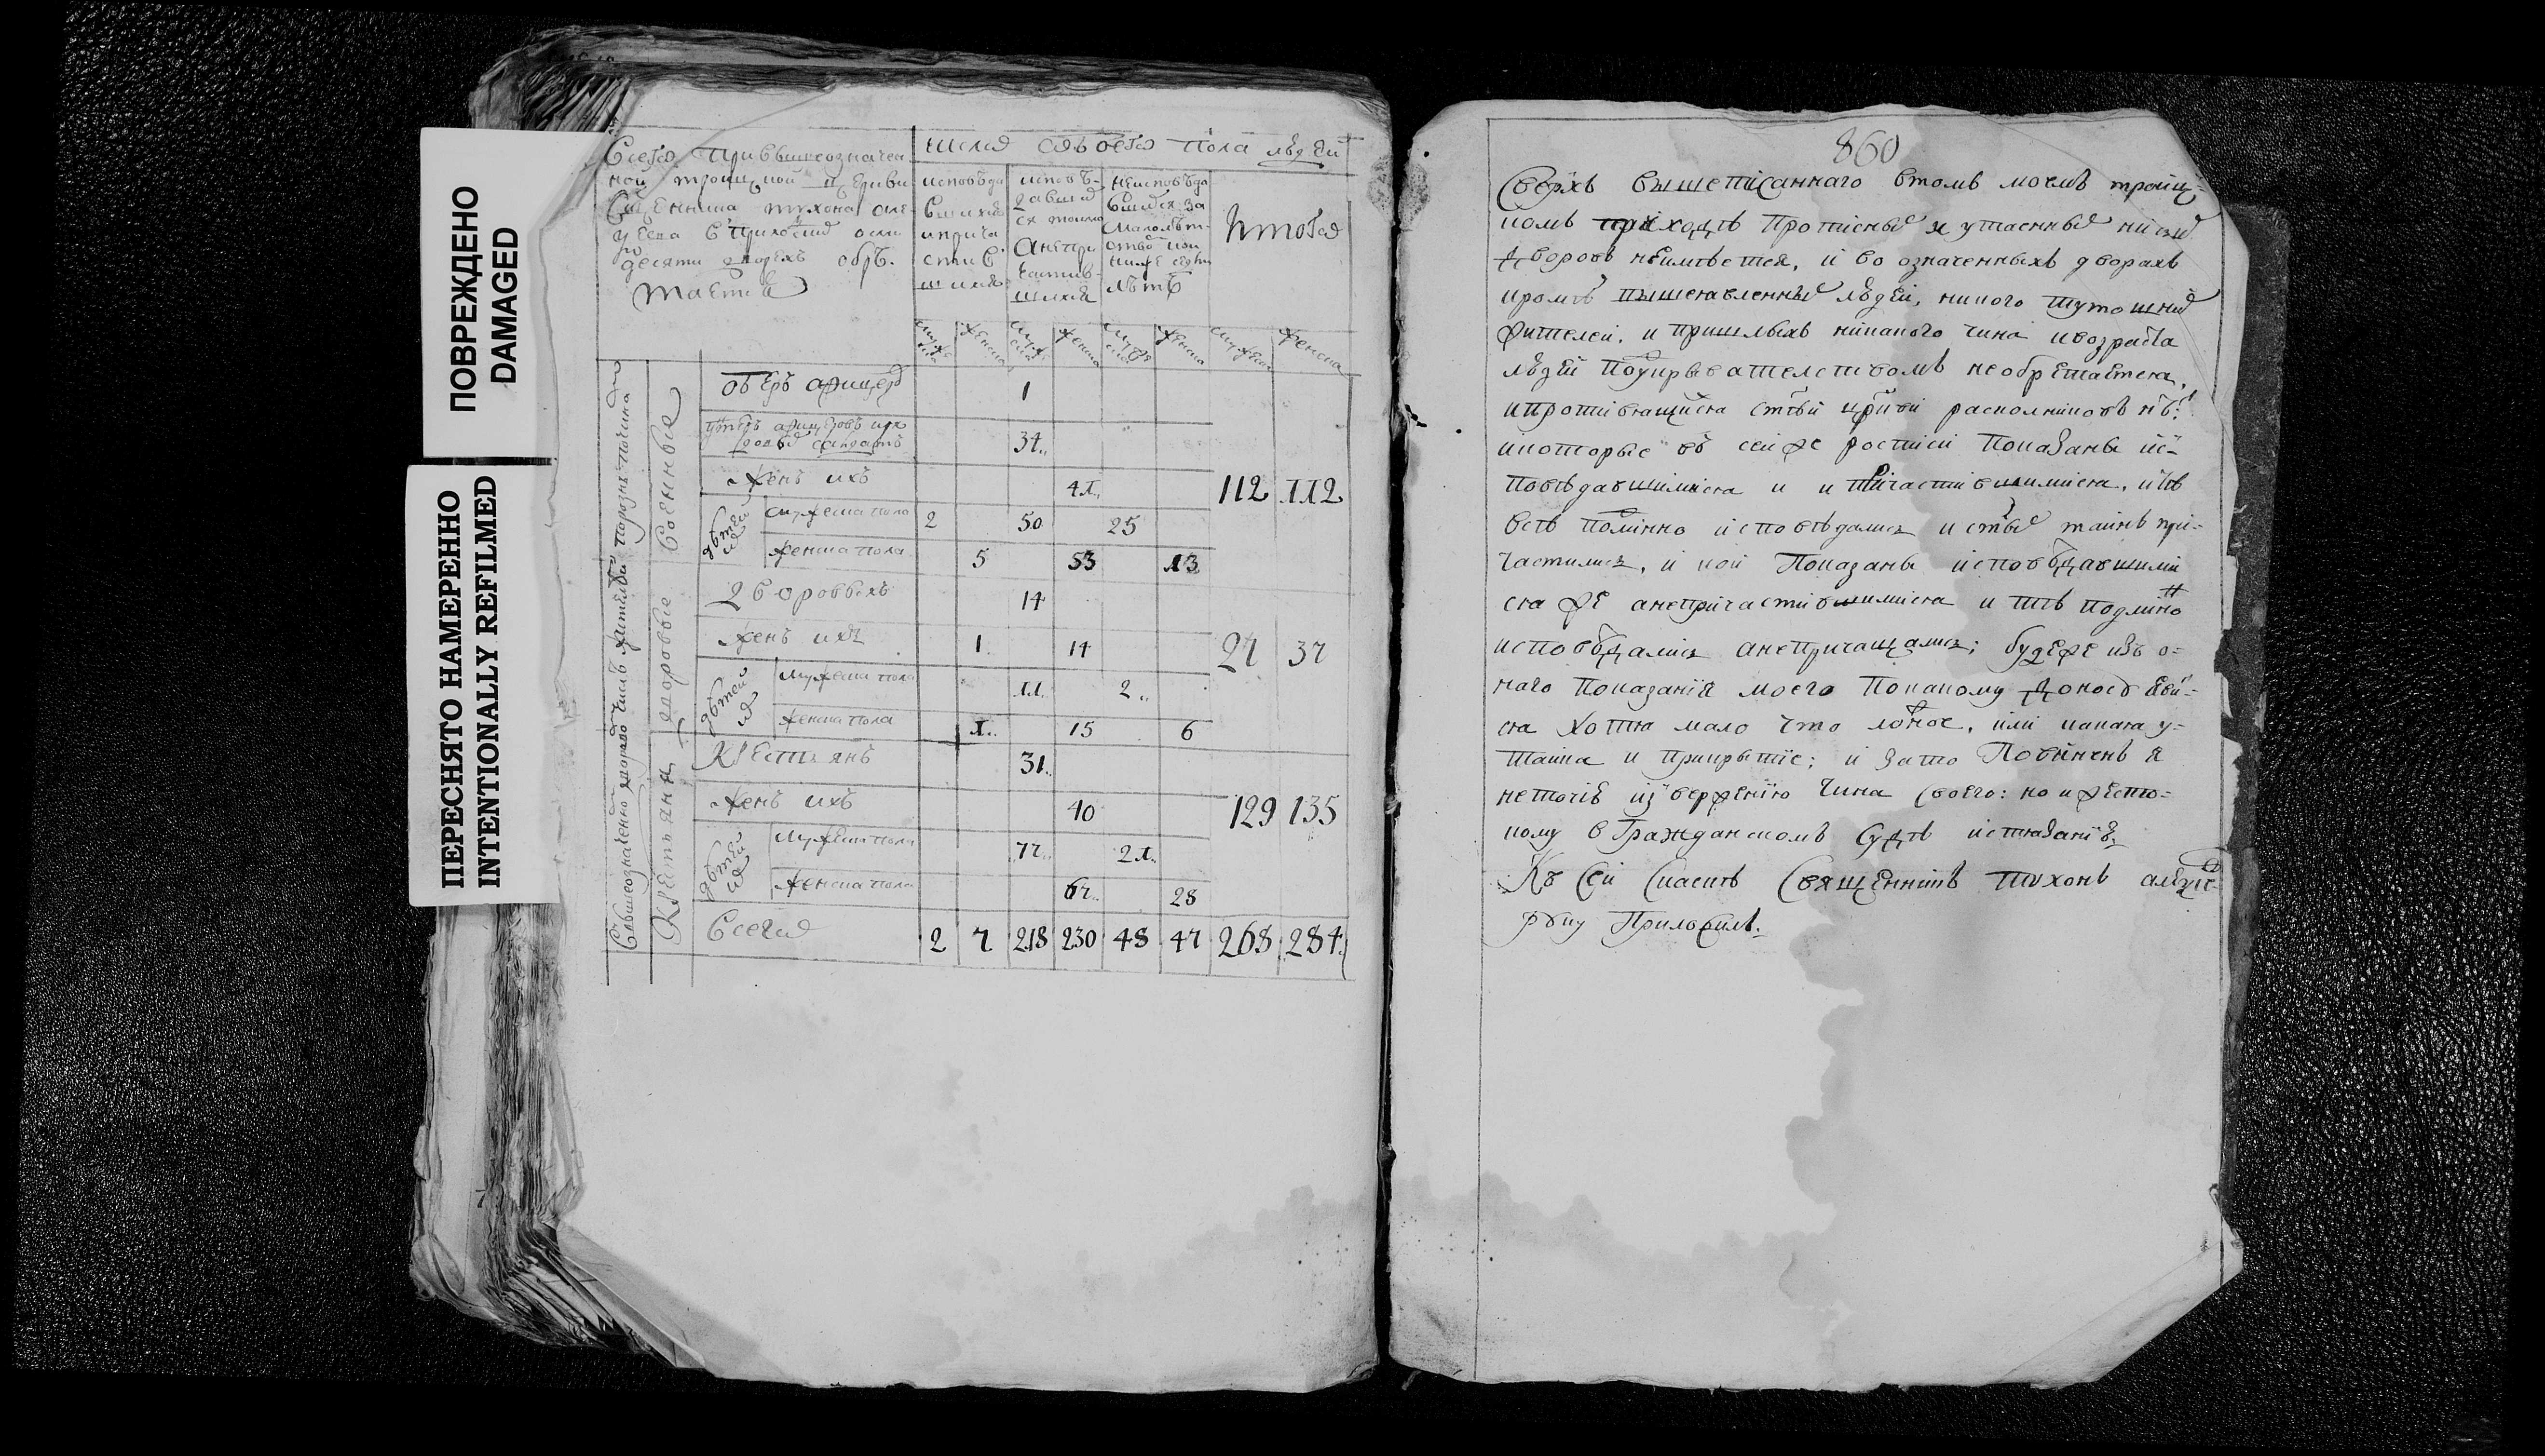 ПОВРЕЖДЕНО
DAMAGED
ПЕРЕСНЯТО НАМЕРЕННО
INTENTIONALLY REFILMED
Всего при вышеозначен
ной троицкой церкви
Священника тихона але
у сева в приходе осми
десяти дворехъ обрѣ
тается
число обоего пола людей
исповѣда
вшихся
и прича
стив
шихся
исповѣ
давших
ся токмо
а непри
частив
шихся
неисповѣда
вшихся за
малолѣт
ство кои
ниже седми
лѣтъ
Итого
мужеска женска мужеска женска мужеска женска мужеска женска
Военные
оберъ афицеръ 1
ундеръ афицеровъ и
рядовыхъ салдатъ 34
женъ ихъ 41 112 112
дѣтей их
мужеска пола 2 50 25
женска пола 5 53 13
дворовые
дворовыхъ 14
женъ ихъ 1 14 27 37
дѣтей их
мужеска пола 11 2
женска пола 1 15 6
Крестьяня
Крестьянъ 31
женъ ихъ 40 129 135
дѣтей их
мужеска пола 77 21
женска пола 67 28
Всего 2 7 218 230 48 47 268 284
860
Сверхъ вышеписаннаго втомъ моемъ троиц-
комъ приходѣ прописныхъ и утаенныхъ никаких
дворовъ неимѣется, и во означенныхъ дворахъ
кромѣ вышеявленныхъ людей, никого тутошних
жителей, и пришлыхъ никакого чина ивозраста
людей подукрывателствомъ необретается,
ипротивящихся святей церкви расколниковъ нѣт:
икоторые въ сей же росписи показаны ис-
повѣдавшимися и причастившимися, и тѣ
всѣ подлинно исповѣдались и святыхъ таинъ при-
частились, и кои показаны исповѣдавшими
ся же анепричастившимися и тѣ подлинно
исповѣдались анепричащались; будеже изъ о-
наго показания моего покакому доносу яви-
ся хотя мало что ложное, или какая у-
тайка и прикрытие; и зато повиненъ я
неточию извержению чина своего: но ижесто-
кому вГражданскомъ судѣ истязанию
Къ сей Священникъ тихонъ алексеевъ
руку приложилъ.